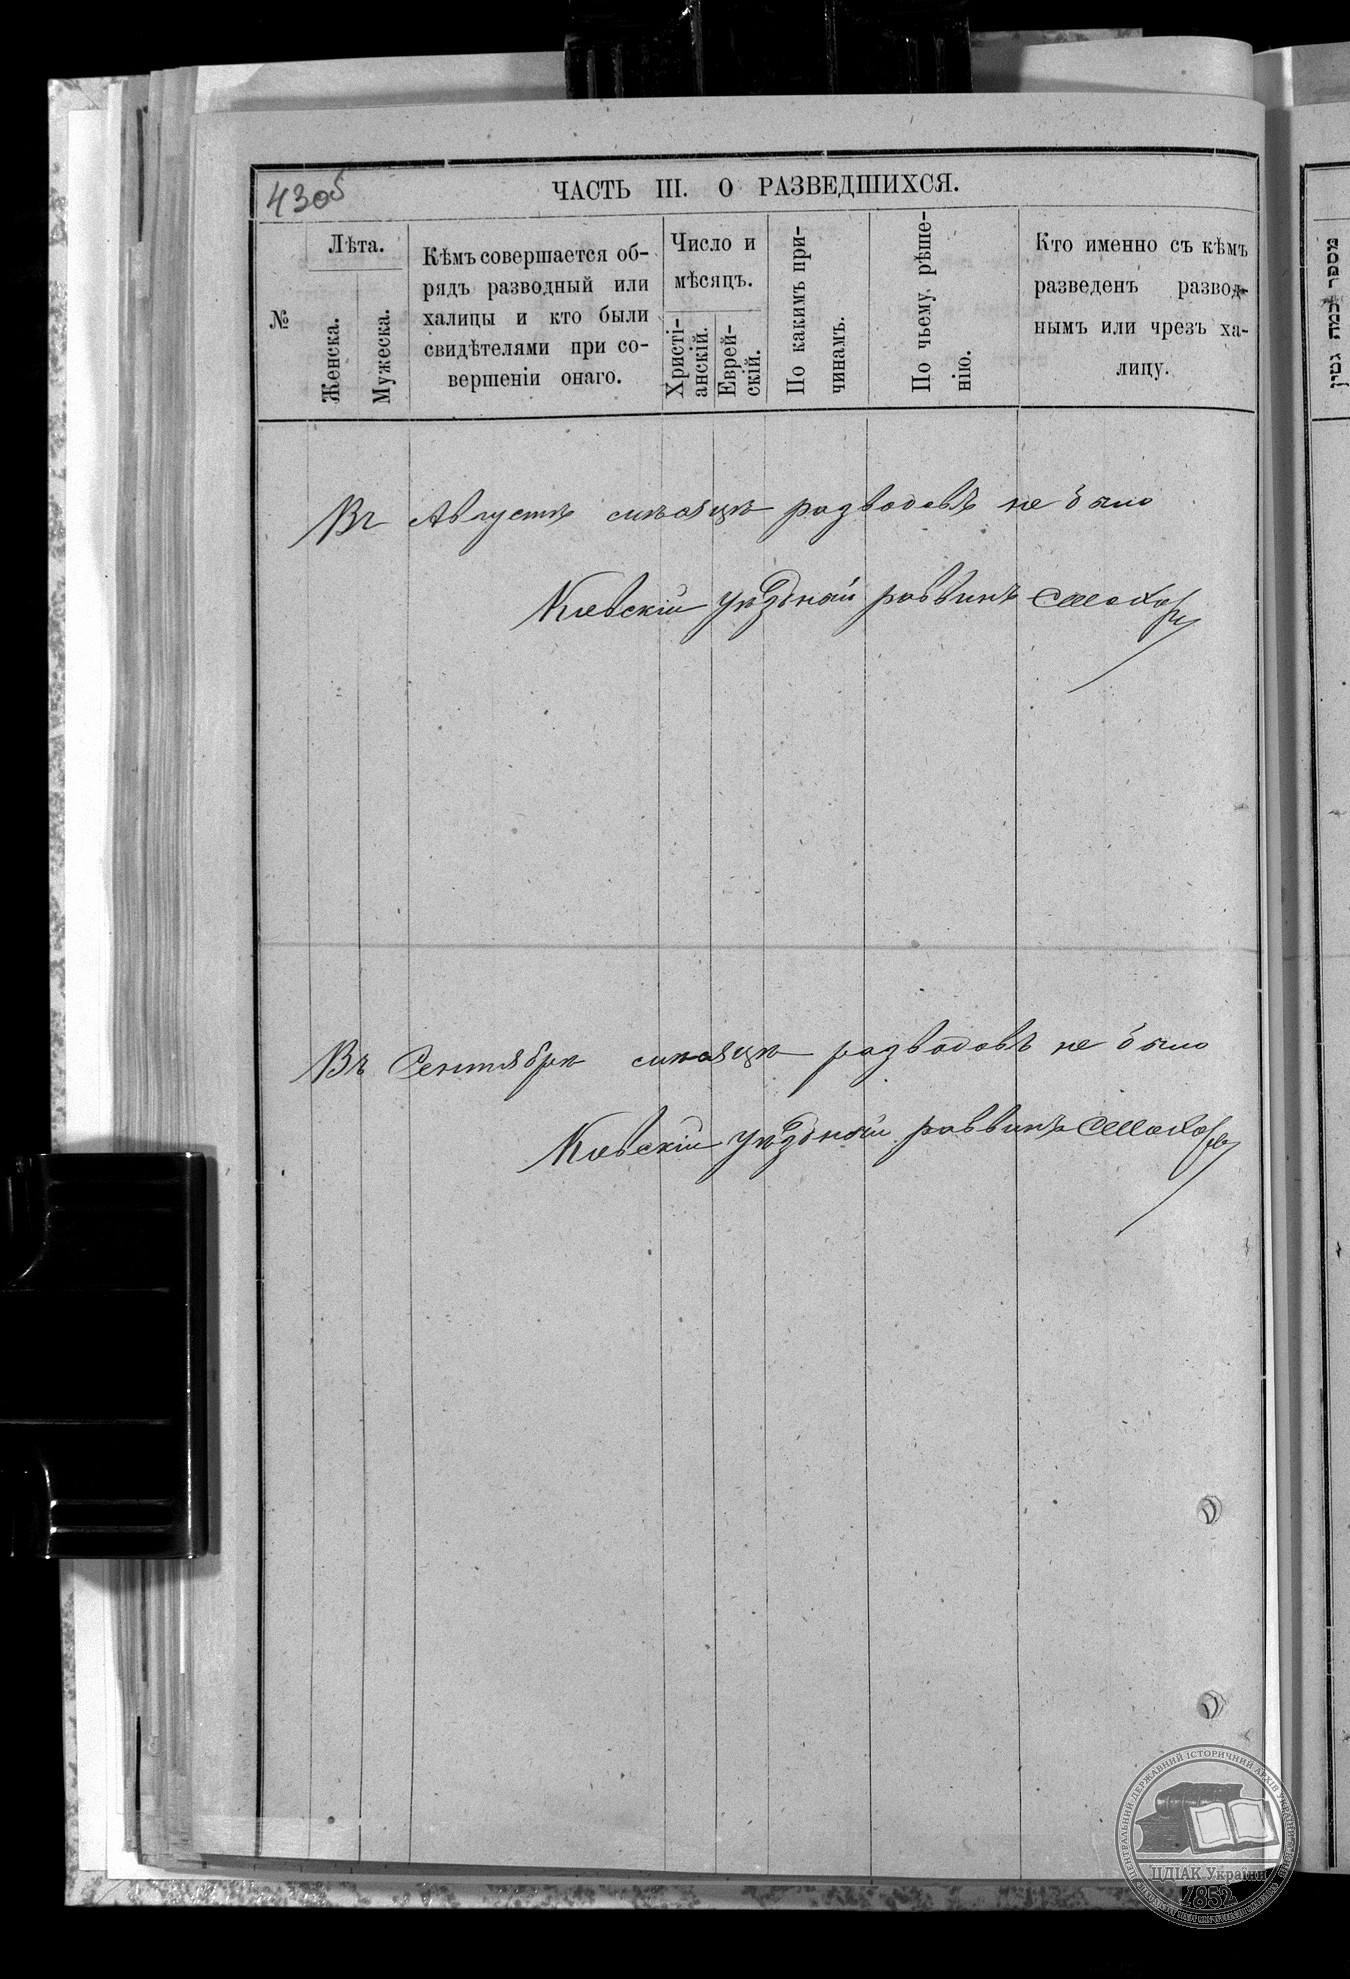 43об
ЧАСТЬ III. О РАЗВЕДШИХСЯ.
№
Лѣта.
Женска.
Мужеска.
Кѣмъ совершается об-
рядъ разводный или
халицы и кто были
свидѣтелями при со-
вершеніи онаго.
Число и
мѣсяцъ.
Христі-
анскій.
Еврей-
скій.
По какимъ при-
чинамъ.
По чьему рѣше-
нію.
Кто именно съ кѣмъ
разведенъ развод-
нымъ или чрезъ ха-
лицу.
מספר כמה גטין
Въ Августѣ мѣсяцѣ разводовъ не было
Кіевскій уѣздный раввинъ
Въ Сентябрѣ мѣсяцѣ разводовъ не было
Кіевскій уѣздный раввинъ
ЦЕНТРАЛЬНИЙ ДЕРЖАВНИЙ ІСТОРИЧНИЙ АРХІВ УКРАЇНИ
ЦДІАК України
1852